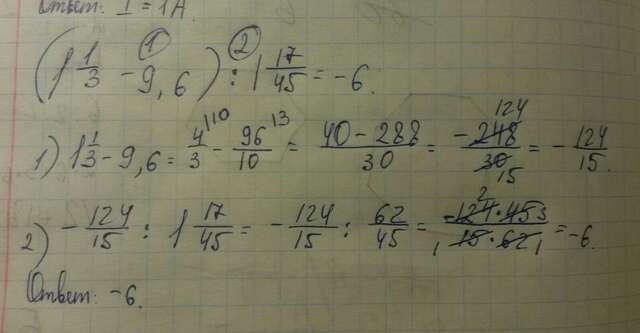 Ответ: I = 1 А.
(1 1/3 - 9,6) : 1 17/45 = -6.
1) 1 1/3 - 9,6 = 4/3 - 96/10 = (40 - 288)/30 = -248/30 = -124/15.
2) -124/15 : 1 17/45 = -124/15 : 62/45 = (-124 · 45)/(15 · 62) = -6.
Ответ: -6.